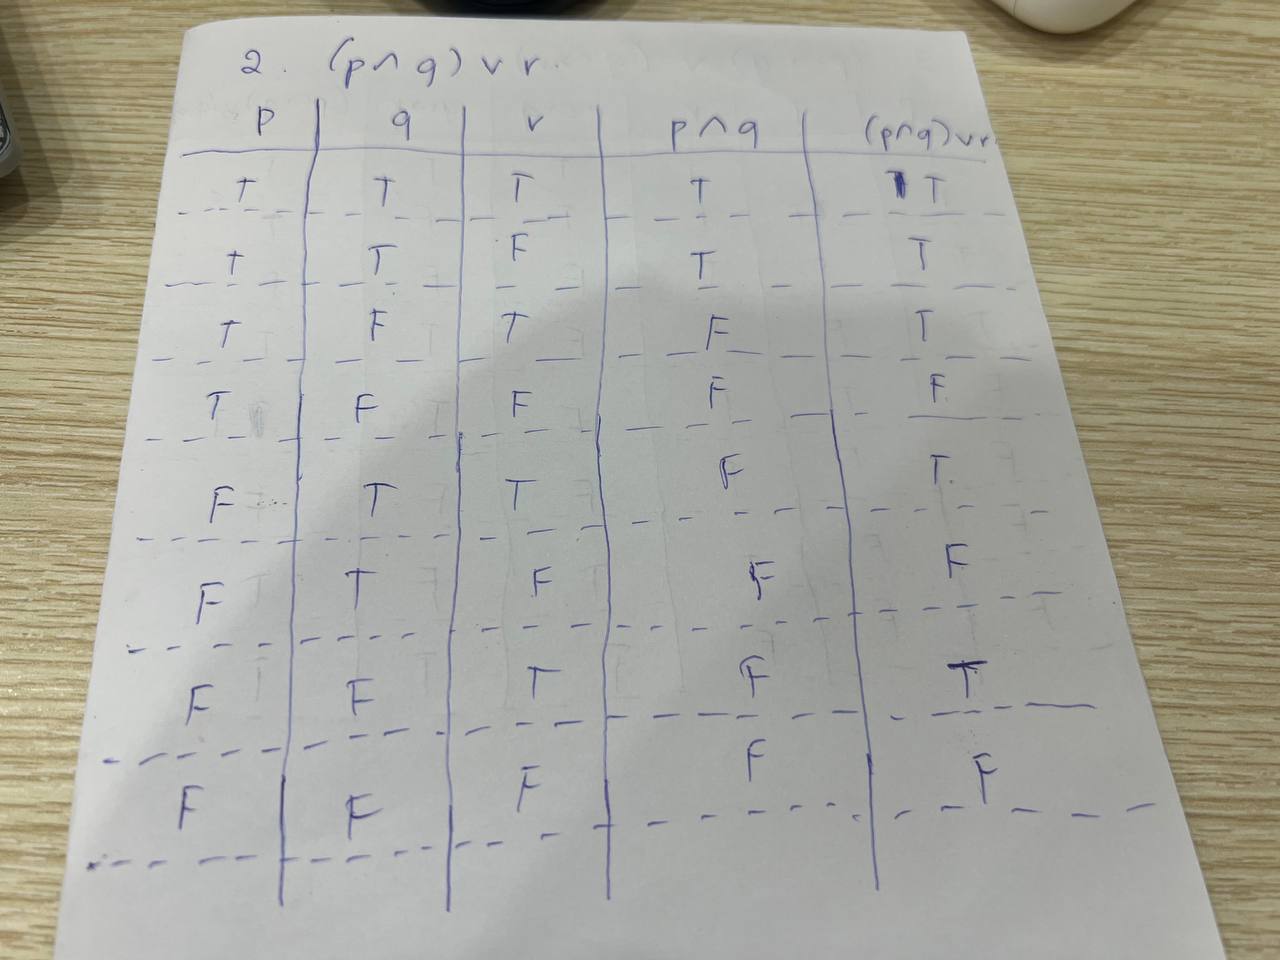 2. (p∧q)∨r.
p q r p∧q (p∧q)∨r
T T T T T
T T F T T
T F T F T
T F F F F
F T T F T.
F T F F F
F F T F T
F F F F F